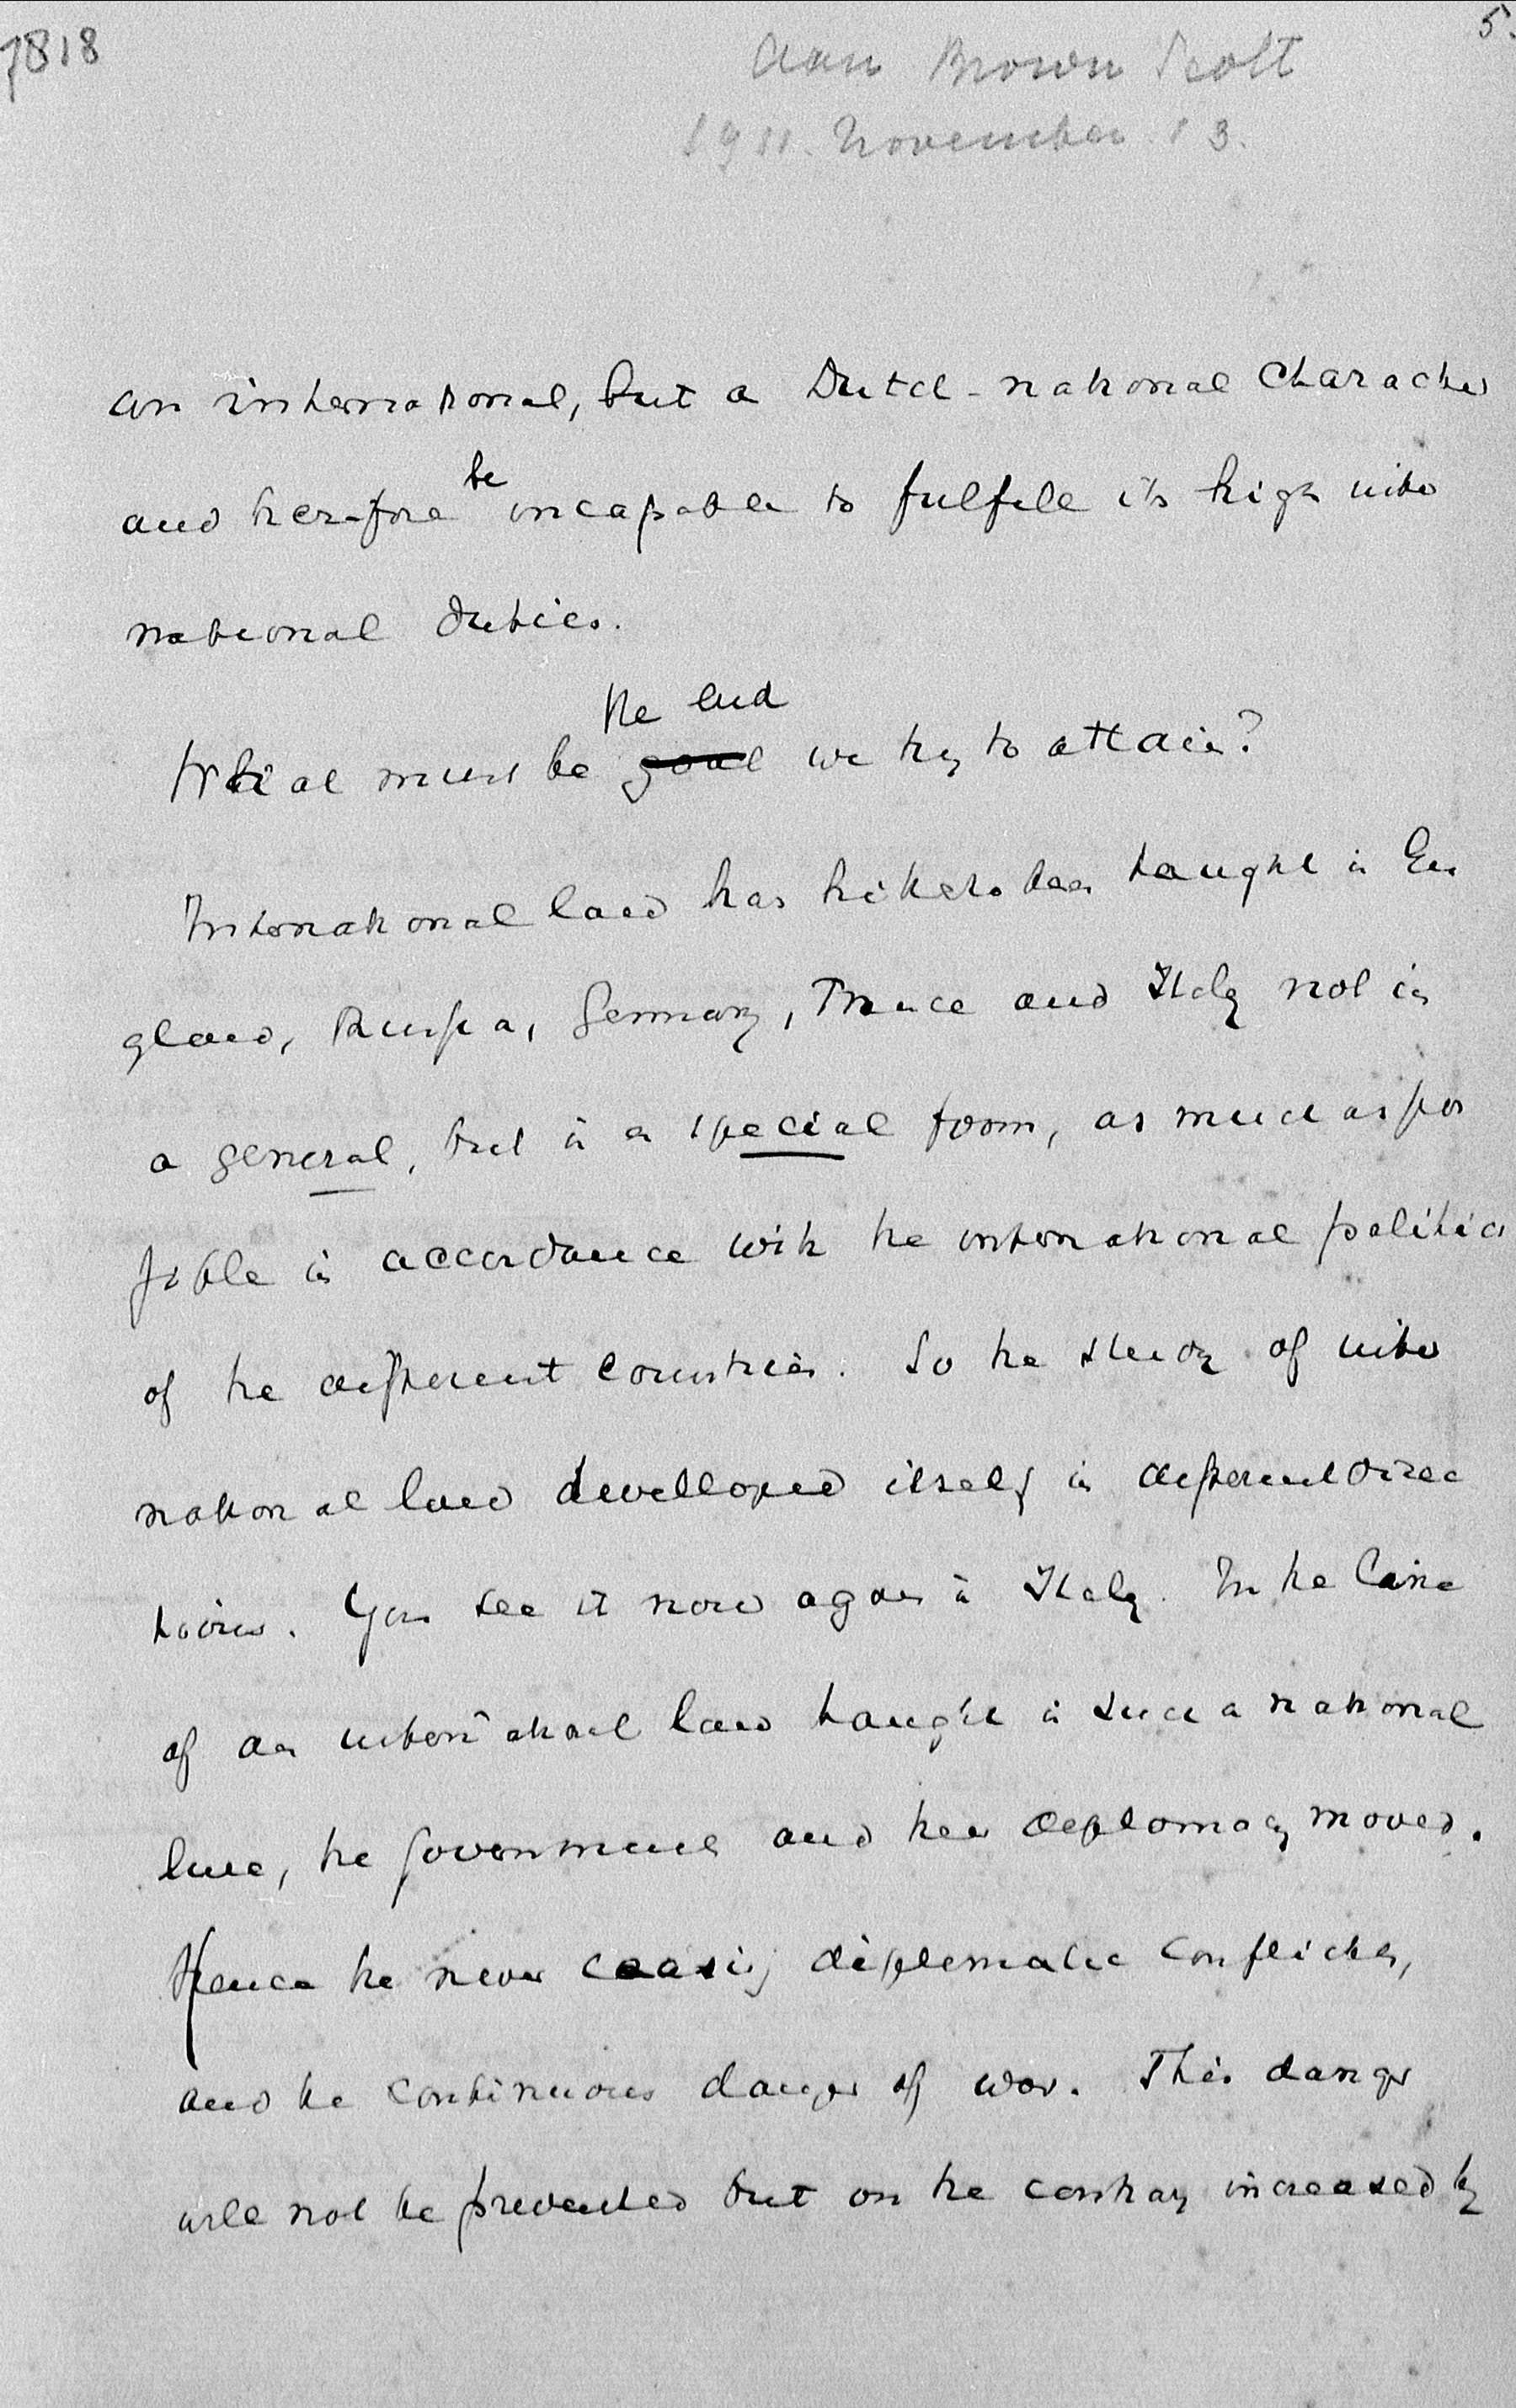 7818
5.
Aan Brown Scott
1911. November 13.
an international, but a Dutch-national character
be
and therefore incapable to fulfill its high inter
national duties.
the end
What must be goal we try to attain?
International law has hitherto been taught in En
gland, Russia, Germany, France and Italy not in
a general, but in a special form, as much as pos
sible in accordance with the international politics
of the different countries. So the study of inter
national law develloped itself in different direc
tions. You see it now again in Italy. In the line
of an international law taught in such a national
line, the government and her diplomacy moved.
Hence the never ceasing diplomatic conflicts,
and the continuous danger of war. This danger
will not be prevented but on the contrary increased by